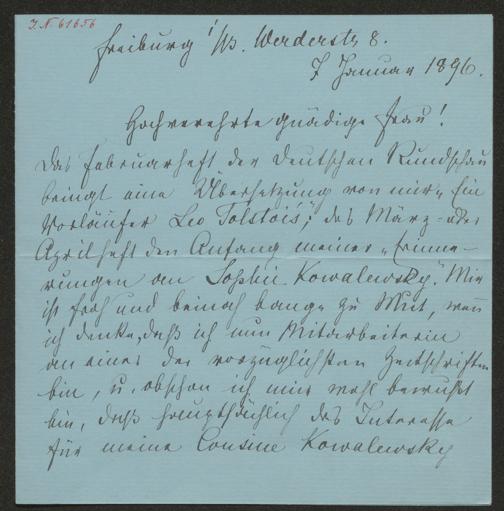 J. N 61656
Freiburg i/B. Werderstr 8.
7 Januar 1896.
Hochverehrte gnädige Frau!
Das Februarheft der Deutschen Rundschau
bringt eine Übersetzung von mir „Ein
Vorläufer Leo Tolstois“; das März- oder
Aprilheft den Anfang meiner „Erinne-
rungen an Sophie Kowalewsky“. Mir
ist froh und beinah bange zu Mut, wenn
ich denke, daß ich nun Mitarbeiterin
an einer der vorzüglichsten Zeitschriften
bin, u. obschon ich mir wohl bewußt
bin, daß hauptsächlich das Interesse
für meine Cousine Kowalewsky